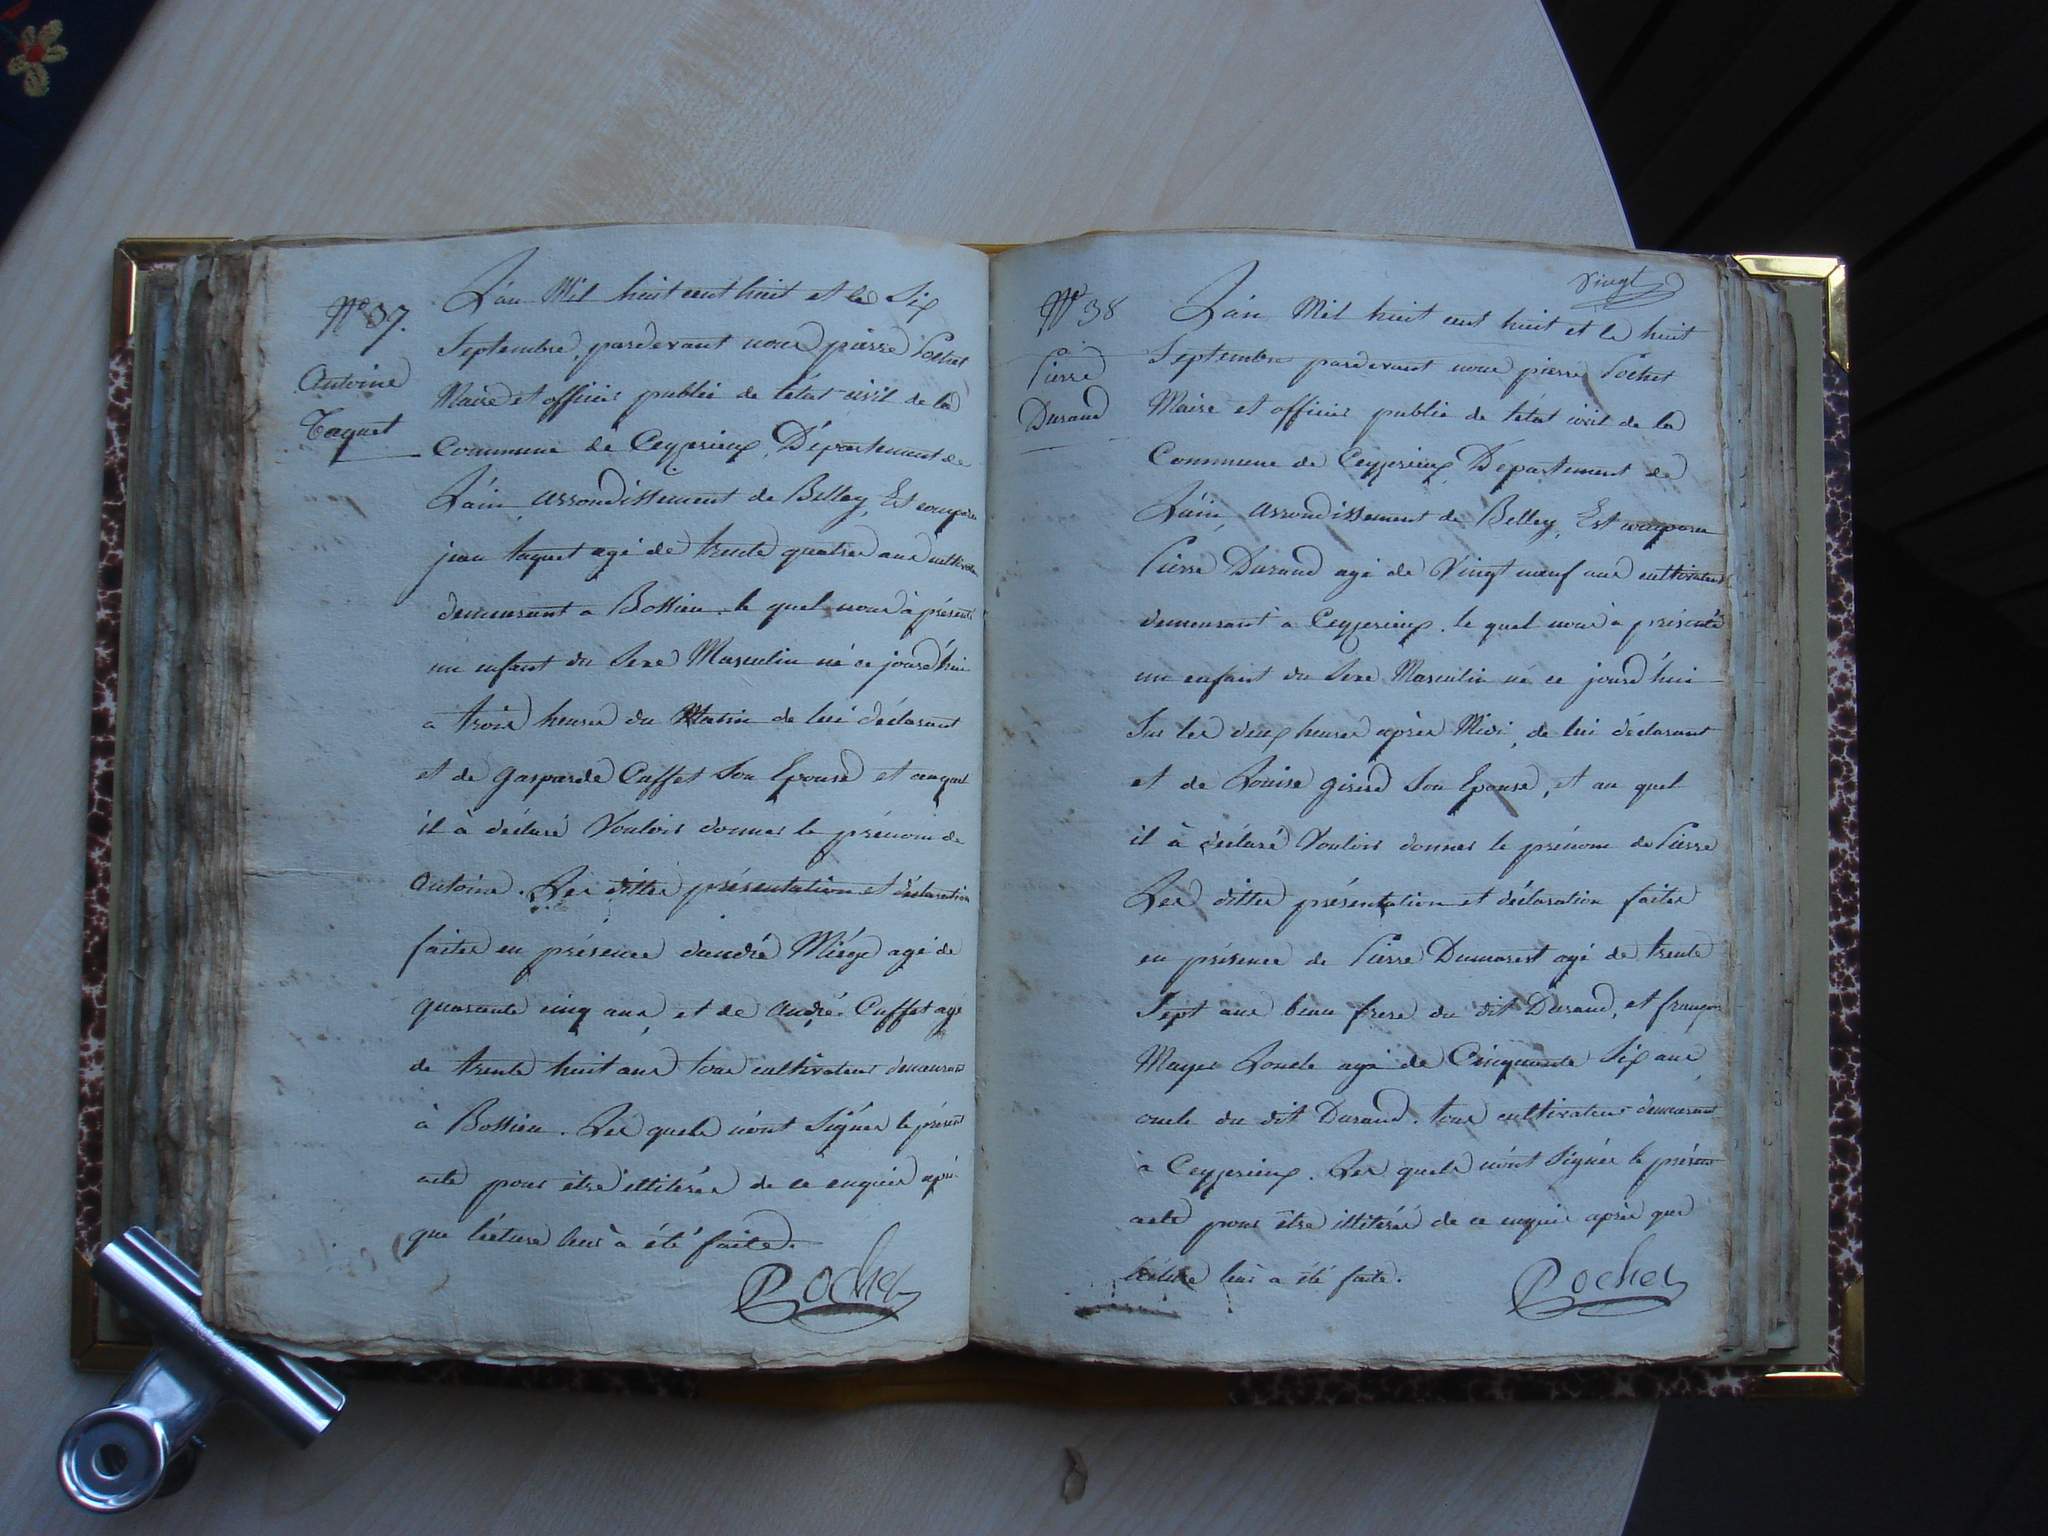 N° 37.
Antoine
Taquet
L'an Mil huit cent huit et le Six
Septembre, pardevant nous pierre Pochet
Maire et officier public de l'état civil de la
Commune de Ceyzerieux, Département de
L'ain, arrondissement de Belley, Est comparu
jean taquet agé de trente quatre ans cultivateur
demeurant a Bossieu. le quel nous à présenté
un enfant du Sexe Masculin né ce jourd'hui
a trois heures du Matin de lui déclarant
et de gasparde Cuffet Son Epouse et auquel
il à déclaré Vouloir donner le prénom de
antoine. Les dittes présentation et déclaration
faites en présence d'andré Miége agé de
quarante cinq ans, et de andré Cuffet agé
de trente huit ans tous cultivateur demeurant
à Bossieu. Les quels n'ont Signés le présent
acte pour être illiterés de ce enquis après
que lécture leur à été faite.
Pochet
vingt
N° 38
Pierre
Durand
L'an Mil huit cent huit et le huit
Septembre pardevant nous pierre Pochet
Maire et officier public de l'état civil de la
Commune de Ceyzerieux, Département de
L'ain, arrondissement de Belley, Est comparu
Pierre Durand agé de Vingt neuf ans cultivateur
demeurant à Ceyzerieux. le quel nous à présenté
un enfant du Sexe Masculin né ce jourd'hui
Sur les deux heures après Midi, de lui déclarant
et de Louise girerd Son Epouse, et au quel
il à déclaré Vouloir donner le prénom de Pierre
Les dittes présentation et déclaration faites
en présence de Pierre Dumarest agé de trente
Sept ans beau frere du dit Durand, et françois
agé de Cinquante Six ans
oncle du dit Durand. tous cultivateur demeurant
à Ceyzerieux. Les quels n'ont Signés le présent
acte pour être illiterés de ce enquis après que
lécture leur a été faite.
Pochet